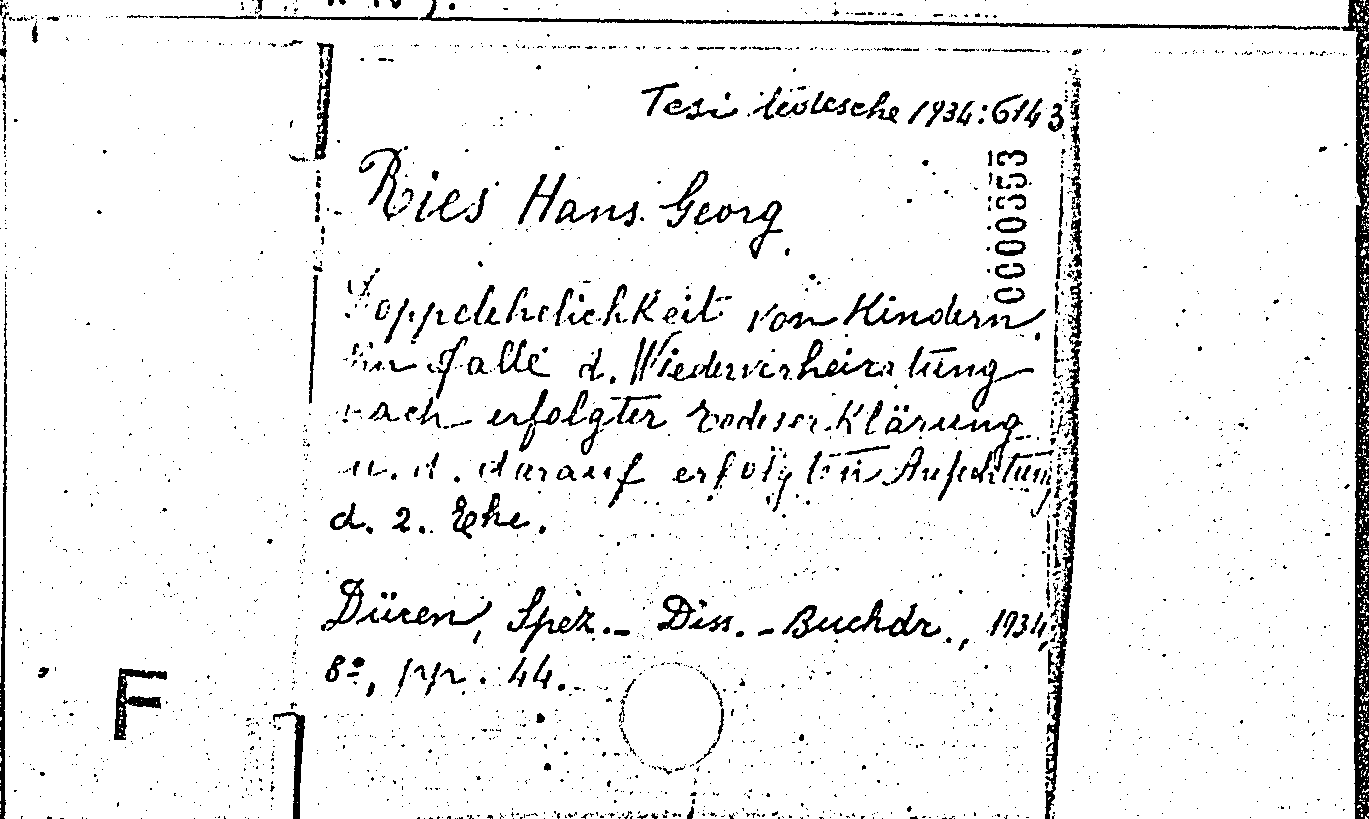 Tesi tedesche 1934:6143
0000353
Ries Hans Georg.
Doppelehelichkeit von Kindern
im Falle d. Wiederverheiratung
nach erfolgter Todeserklärung
u. d. darauf erfolgten Anfechtung
d. 2. Ehe.
Düren, Spez.- Diss.-Buchdr., 1934,
8º, pp. 44.
F